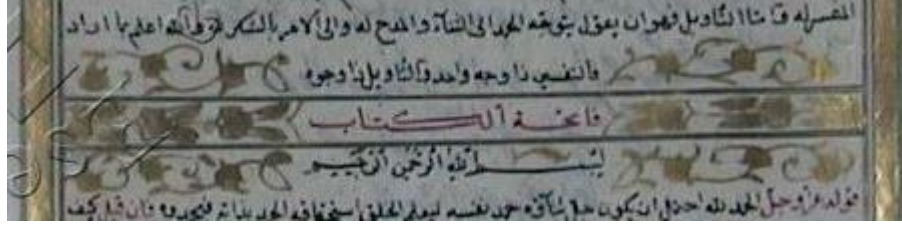 المفسر له فاما التأويل فهو ان يقول يتوجه الحمد الى الثناء والمدح له والى الامر بالشكر لله والله اعلم بما اراد
فالتفسير ذا وجه واحد والتأويل ذا وجوه
فاتحة الكتاب
بسم الله الرحمن الرحيم
قوله عز وجل الحمد لله احتمل ان يكون جل ثناؤه حمد نفسه ليعلم الخلق استحقاقه الحمد بذاته فيحمدوه فان قيل كيف